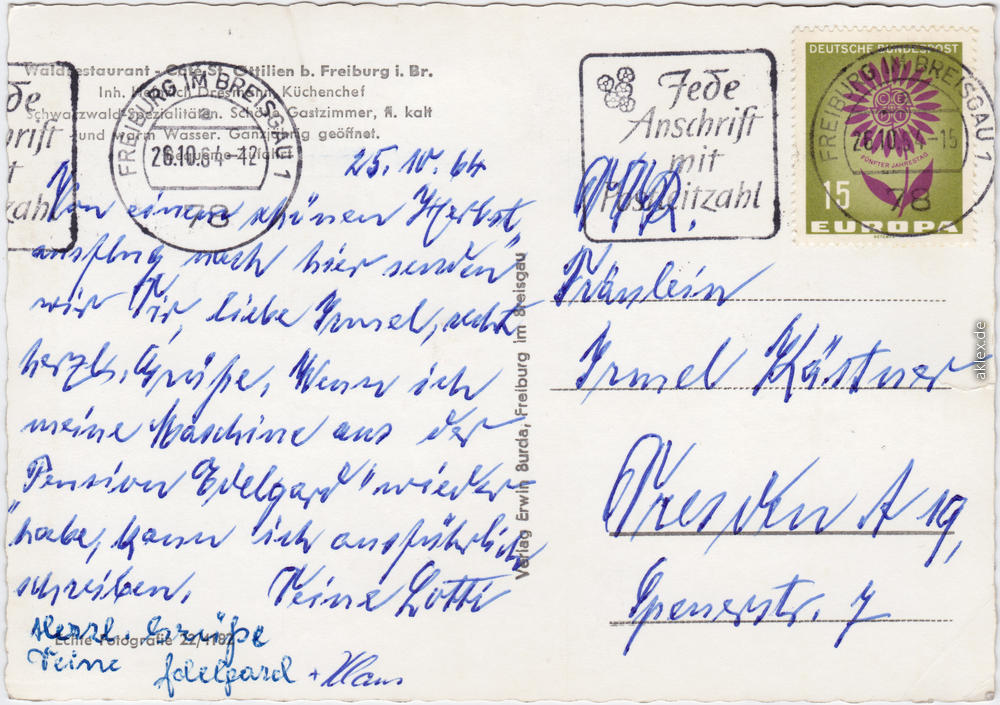 Waldrestaurant - Café St. Ottilien b. Freiburg i. Br.
Inh. Heinrich Dresmann, Küchenchef
Schwarzwald-Spezialitäten. Schöne Gastzimmer, fl. kalt
und warm Wasser. Ganzjährig geöffnet.
Bequeme Zufahrt
25.10.64
Von einem schönen Herbst
ausflug nach hier senden
wir Dir, liebe Irmel, recht
herzl. Grüße. Wenn ich
meine Maschine aus der
Pension "Edelgard" wieder
habe, kann ich ausführlich
schreiben. Deine Lotti
Herzl. Grüße
Deine Edelgard + Klaus
Echte Fotografie 22/4182
Verlag Erwin Burda, Freiburg im Breisgau
de
rift
t
zahl
FREIBURG IM BREISGAU 1
a
26.10.64-12
78
Jede
Anschrift
mit
Postleitzahl
DEUTSCHE BUNDESPOST
CEPT
FÜNFTER JAHRESTAG
15
EUROPA
FREIBURG IM BREISGAU 1
26.10.64-15
78
Fräulein
Irmel Kästner
Dresden A 19,
Spenerstr. 7
aklex.de